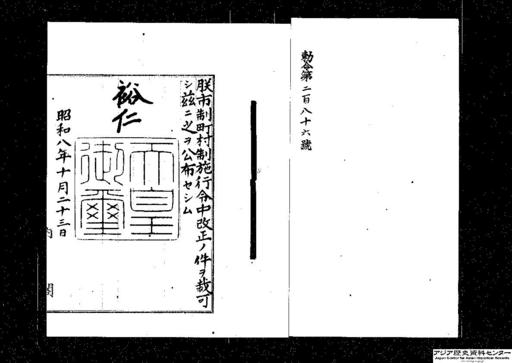 勅令第二百八十六號
朕市制町村制施行令中改正ノ件ヲ裁可
シ茲ニ之ヲ公布セシム
裕仁
天皇御璽
昭和八年十月二十三日
内閣
アジア歴史資料センター
Japan Center for Asian Historical Records